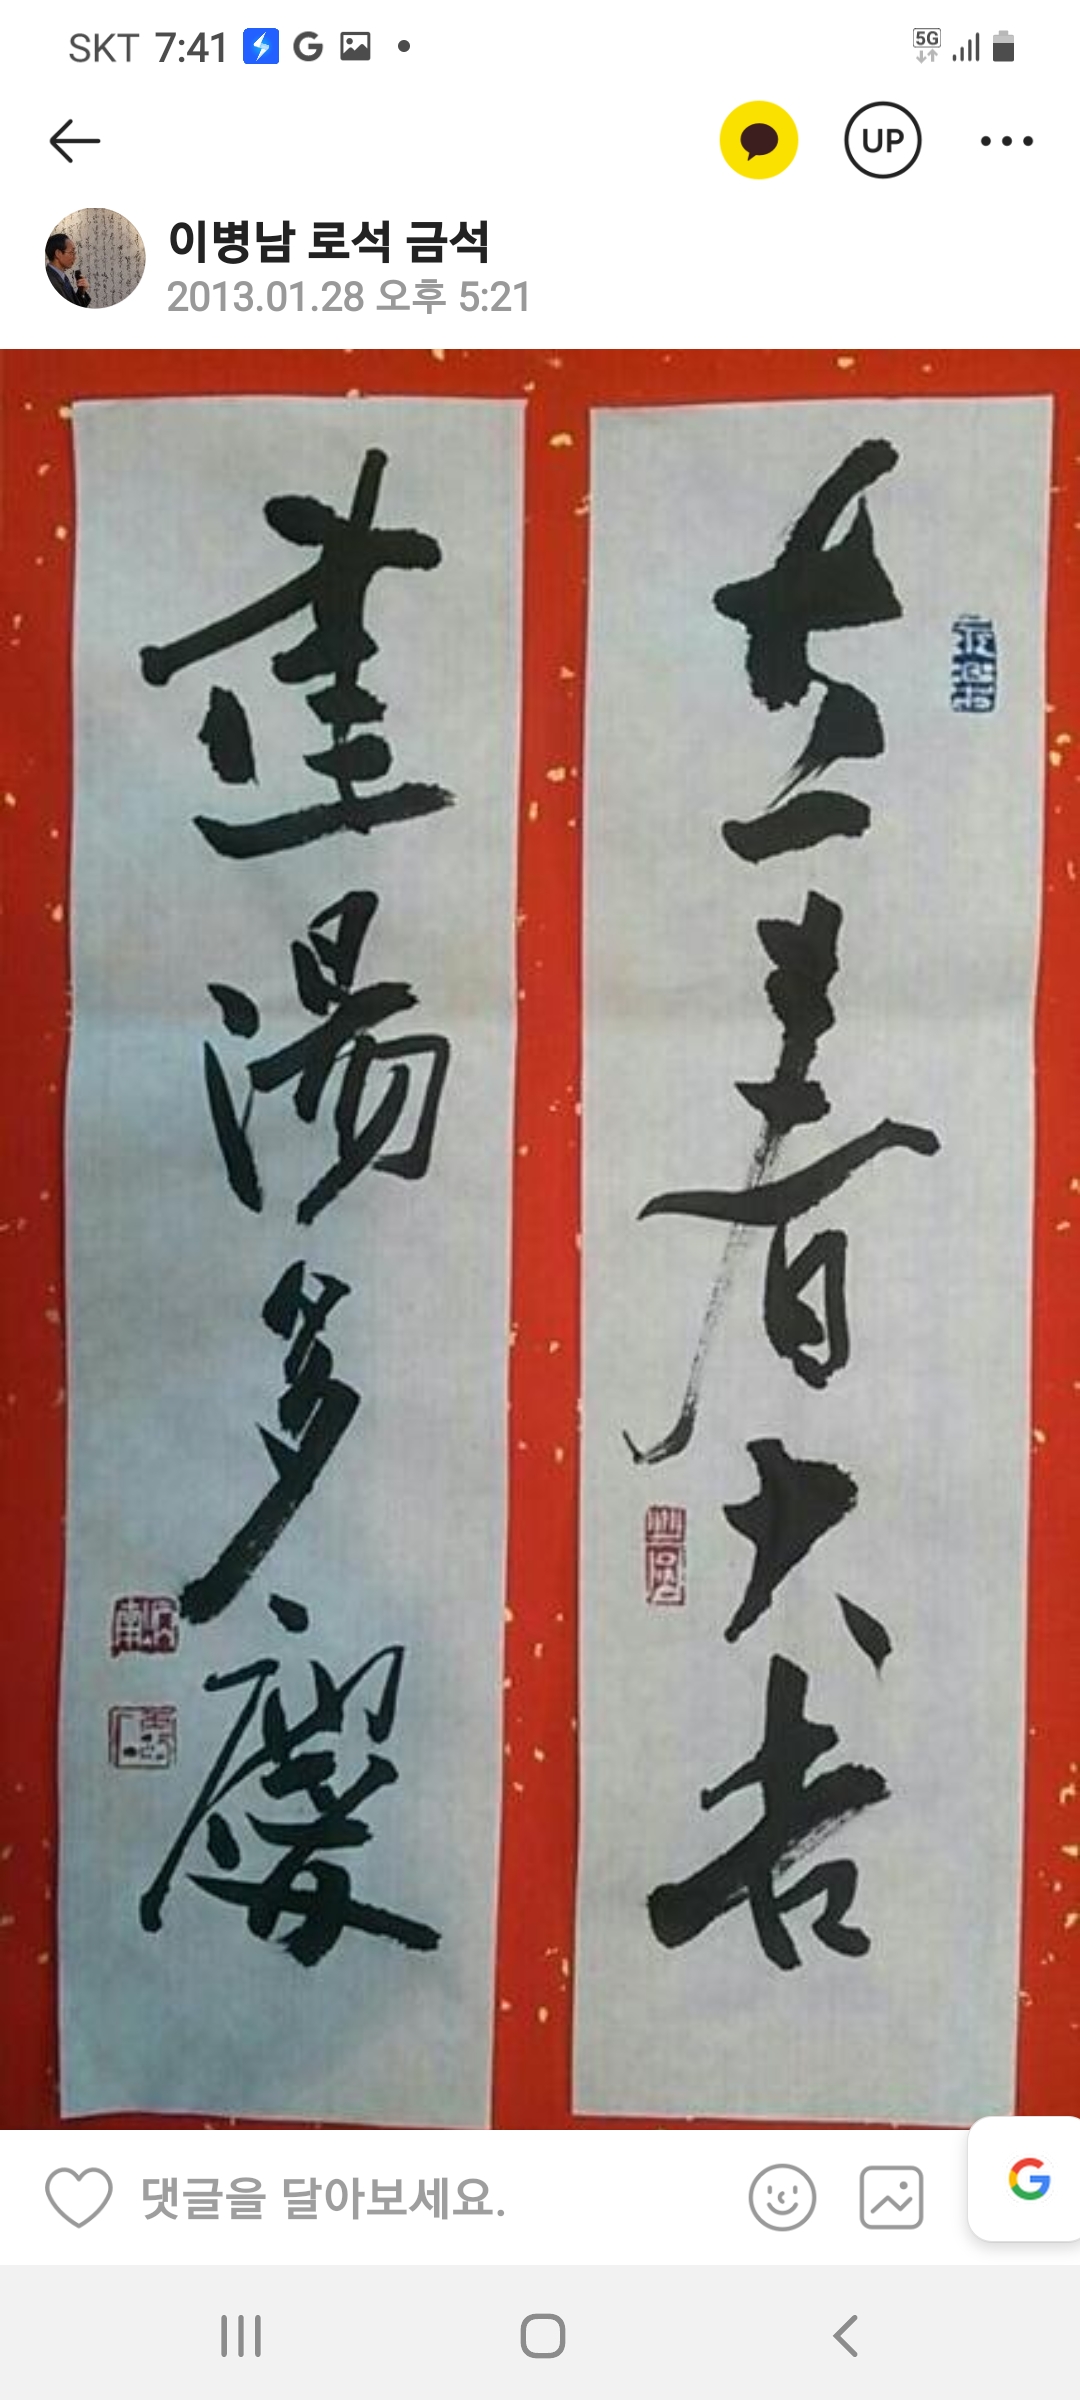 SKT 7:41
5G
UP
이병남 로석 금석
2013.01.28 오후 5:21
立春大吉
建陽多慶
댓글을 달아보세요.